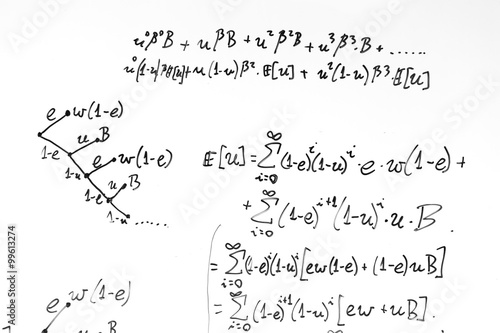 u⁰β⁰B + uβB + u²β²B + u³β³B + ......
u⁰(1-u)β𝔼[u] + u(1-u)β²·𝔼[u] + u²(1-u)β³·𝔼[u]
e w(1-e)
1-e u B
1-u e w(1-e)
1-e u B
1-u ......
𝔼[u] = ∑_{i=0}^{∞} (1-e)^i (1-u)^i · e · w(1-e) +
+ ∑_{i=0}^{∞} (1-e)^{i+1} (1-u)^i · u · B
= ∑_{i=0}^{∞} (1-e)^i (1-u)^i [ew(1-e) + (1-e)uB]
= ∑_{i=0}^{∞} (1-e)^{i+1} (1-u)^i [ew + uB].
e w(1-e)
u B
Adobe Stock | #99613274